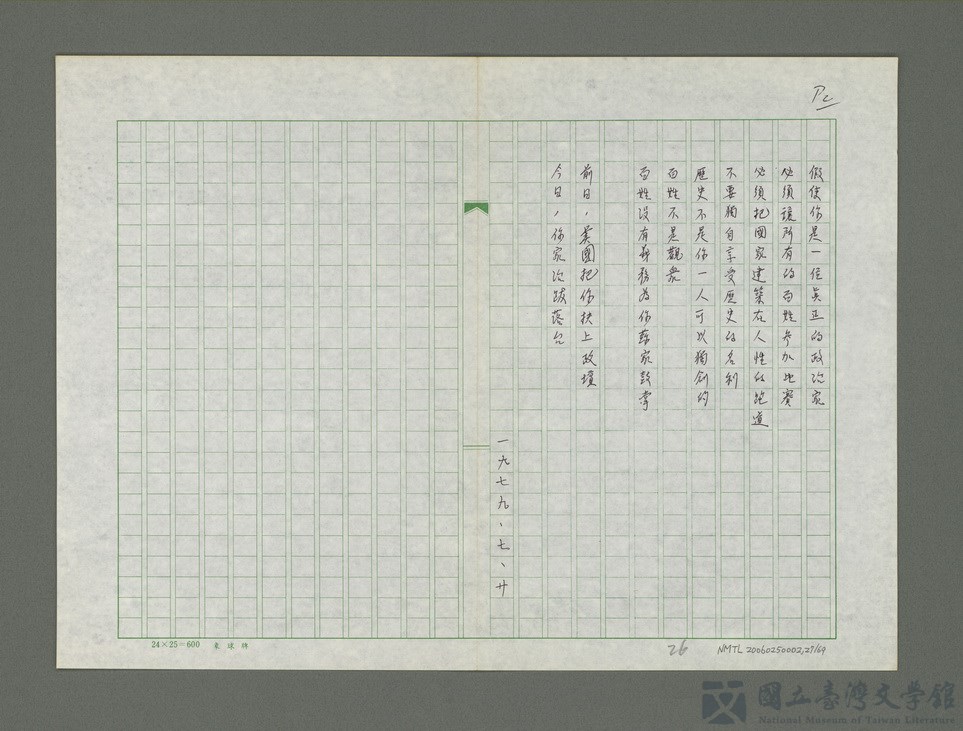 P2
假使你是一位真正的政治家
必須讓所有的百姓參加比賽
必須把國家建築在人性的跑道
不要獨自享受歷史的名利
歷史不是你一人可以獨創的
百姓不是觀衆
百姓沒有義務為你家鼓掌
前日,美國把你扶上政壇
今日,你家沦跋落台
一九七九、七、廿
24×25=600
26
NMTL 20060250002,27/64
國立臺灣文學館
National Museum of Taiwan Literature